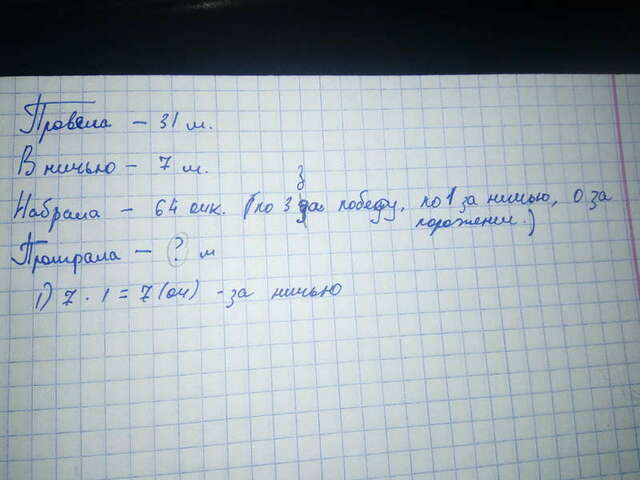 Провела – 31 м.
В ничью – 7 м.
Набрала – 64 очк. (по 3 за победу, по 1 за ничью, 0 за поражение.)
Проиграла – ? м
1) 7 · 1 = 7 (оч) - за ничью